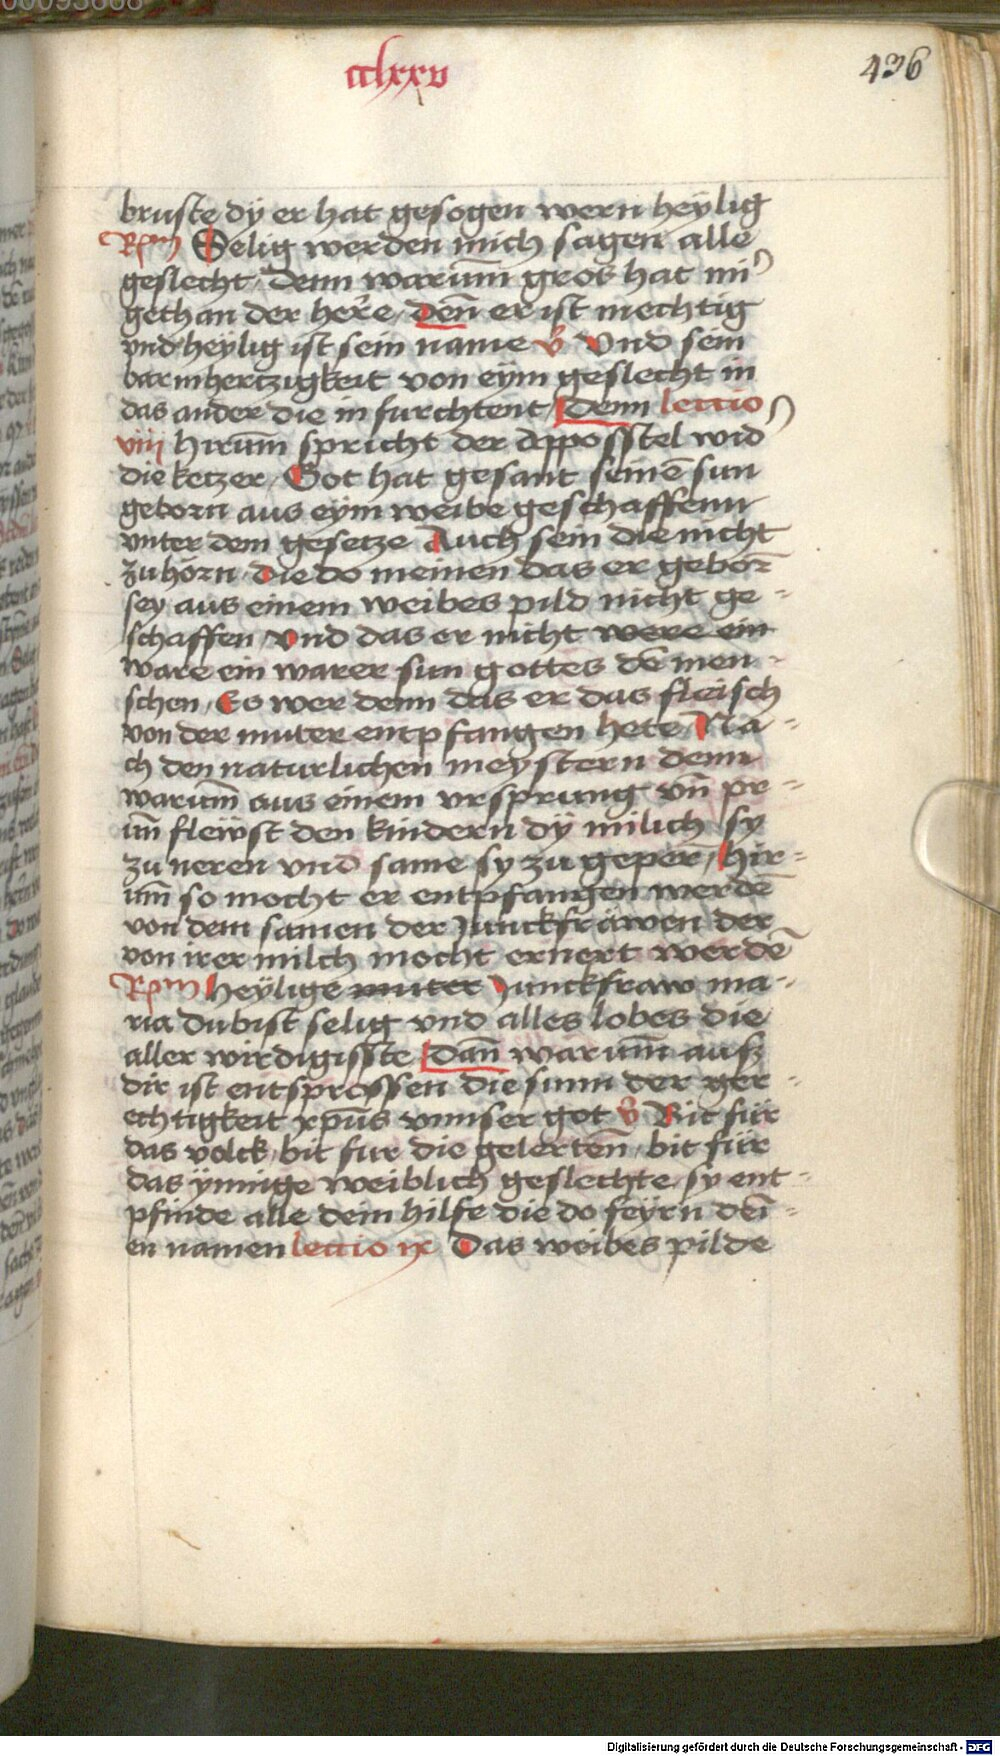 00093668
cclxxv
436
bruste dÿ er hat gesogen wern heÿlig
Rpm Selig werden mich sagen alle
geslecht, Denn warūm gros hat mi᾿
gethan der here, Den̄ er ist mechtig
vnd heÿlig ist sein name v̄ Vnd sein
barmhertzigkeit von eÿm geslecht in
das ander die in furchtent, Denn lectio
viij hirūm spricht der Apposstel wid᾿
die ketzer, Got hat gesant seinē sun
geborn aus eÿm weibe geschaffenn
vnter dem gesetze Auch sein die nicht
zu hörn, die do meinen das er gebor̄
sey aus einem weibes pild nicht ge-
schaffen, vnd das er nicht were ein
ware ein warer sun gottes dē men-
schen, Es wer denn das er das fleisch
von der muter entpfangen hete, Na-
ch den naturlichen meystern denn
warūm aus einem vrsprung vn̄ pr-
un̄ fleüst den kindern dÿ milich sy
zu neren vnd same sy zu geper̄, hir-
um̄ so mocht er entpfangen werdē
von dem samen der Junckfrawen der
von irer milch mocht ernert werdē
Rpm Heÿlige muter Junckfraw ma-
ria du bist selig vnd alles lobes die
aller wirdigisste Dan̄ warūm ausz
dir ist entsprossen die sunn der ger-
echtigkeit xp̄us vnnser got v̄ Bit für
das volck, bit fur die gelertēn, bit für
das ÿnnige weiblich geslechte, sy ent-
pfinde alle dein hilfe die do feyrn dei-
en namen lectio ix Das weibes pilde
Digitalisierung gefördert durch die Deutsche Forschungsgemeinschaft - DFG